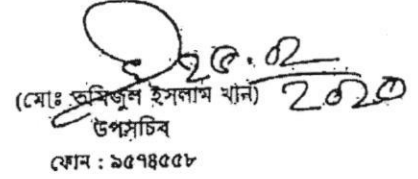 ২৫.০২
(মোঃ তমিজুল ইসলাম খান)
উপসচিব
ফোন : ৯৫৭৪৫৫৮